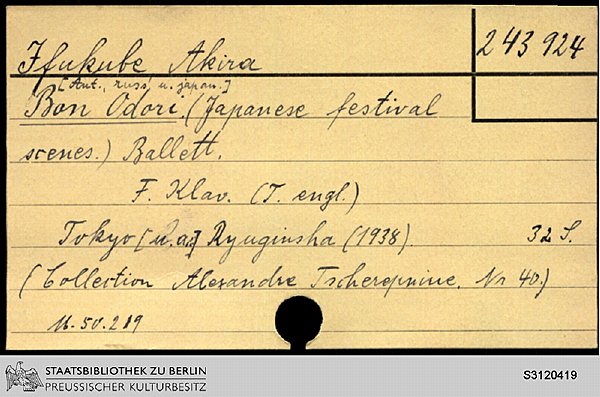 Ifukube Akira
243 924
[Aut., russ. u. japan.]
Bon Odori. (Japanese festival
scenes.) Ballett.
F. Klav. (T. engl.)
Tokyo [u.a.] Ryuginsha (1938). 32 S.
(Collection Alexandre Tscherepnine. Nr 40.)
M. 50. 219
STAATSBIBLIOTHEK ZU BERLIN
PREUSSISCHER KULTURBESITZ
S3120419